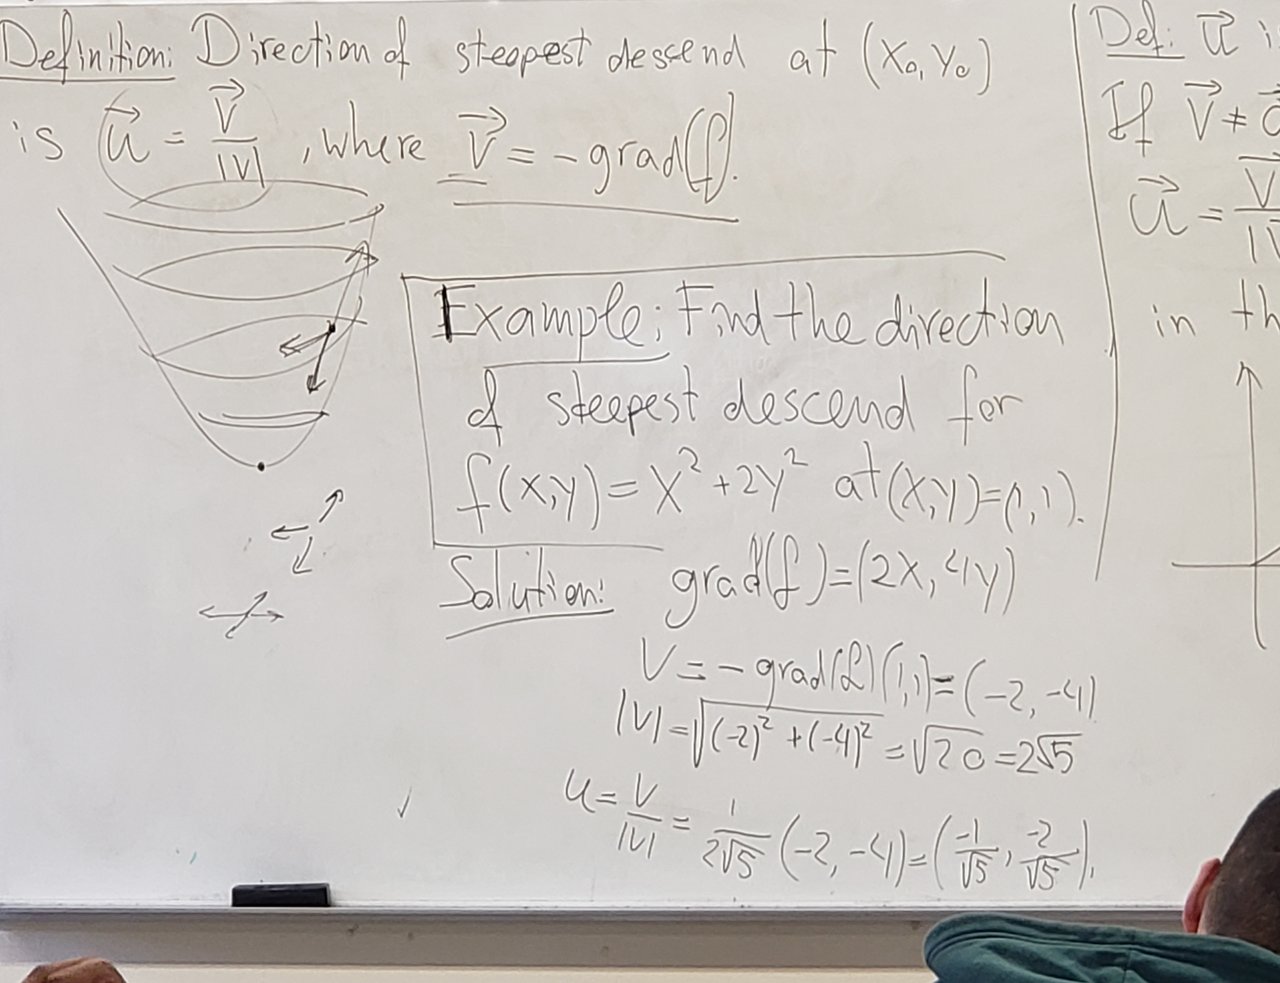 Definition: Direction of steepest descend at (x₀, y₀)
is u⃗ = V⃗/|V|, where V⃗ = -grad(f).
Example: Find the direction
of steepest descend for
f(x,y) = x² + 2y² at (x,y)=(1,1).
Solution: grad(f)=(2x, 4y)
V = -grad(f)(1,1) = (-2, -4)
|V| = √((-2)² + (-4)²) = √20 = 2√5
u = V/|V| = 1/(2√5) (-2, -4) = (-1/√5, -2/√5).
Def: u⃗
If V⃗ ≠
u⃗ = V⃗/|V
in